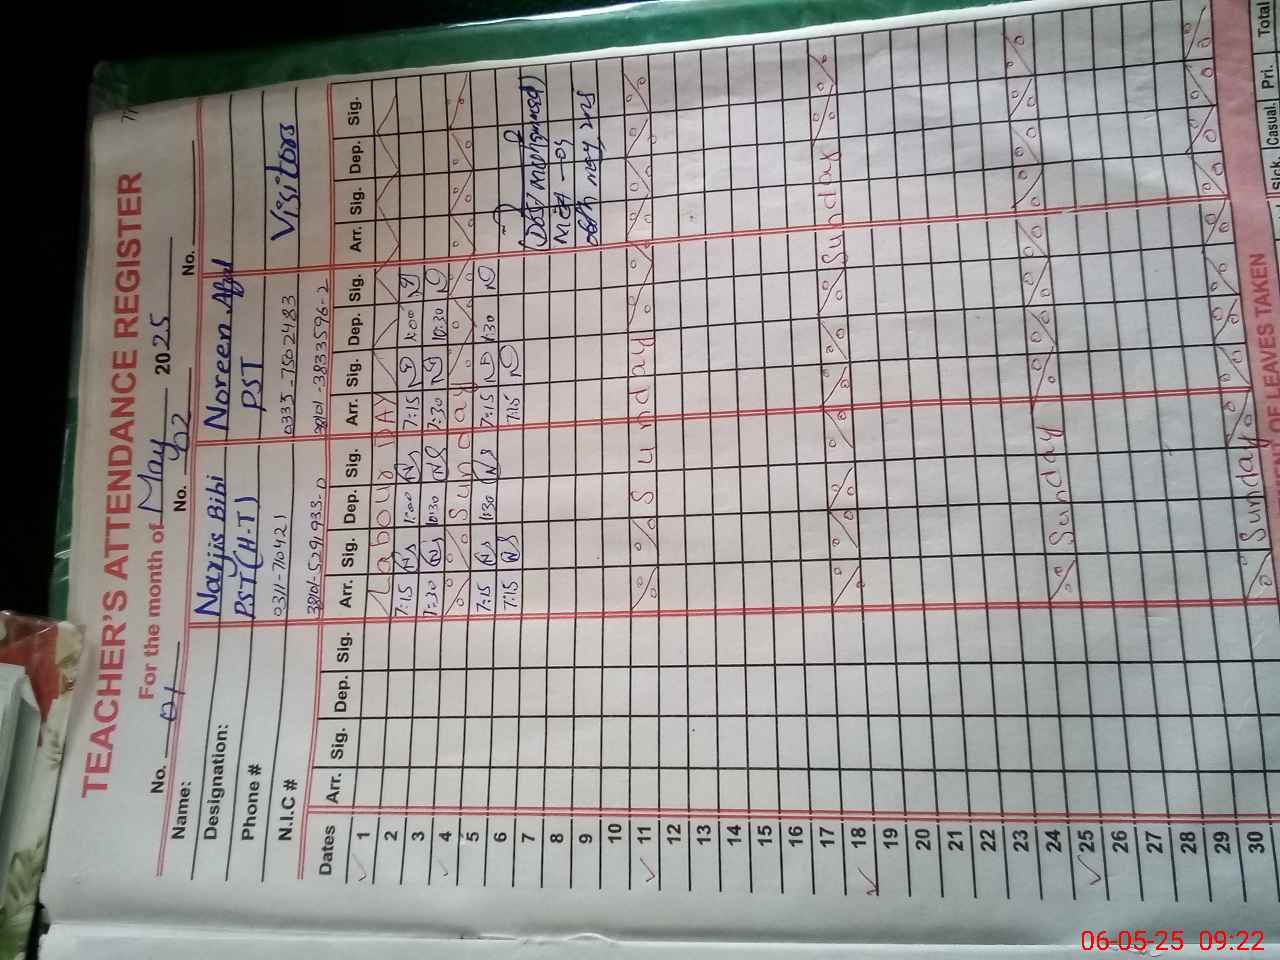 TEACHER'S ATTENDANCE REGISTER
For the month of May 2025
No. 01 No. 02 No.
Name: Narjis Bibi Noreen Afzal
Designation: PST (H-T) PST
Phone # 0333-7502483 Visitors
N.I.C # 38101-5291933-0 38101-3833596-2
Dates Arr. Sig. Dep. Sig. Arr. Sig. Dep. Sig. Arr. Sig. Dep. Sig. Arr. Sig. Dep. Sig.
1 Labour DAY
2 7:15 1:00 7:15 1:00
3 7:30 10:30 7:30 10:30
4 Sunday
5 7:15 1:30 7:15 1:30
6 7:15 7:15
7
8
9
10
11 Sunday
12
13
14
15
16
17
18 Sunday
19
20
21
22
23
24
25 Sunday
26
27
28
29
30
Sunday
OF LEAVES TAKEN
Sick Casual. Pri. Total
06-05-25 09:22